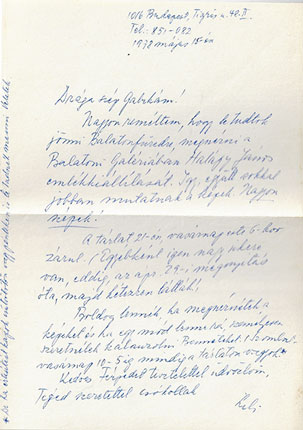 1016 Budapest, Tigris u. 48. II.
Tel.: 851-082
1978 május 15-én
Drága szép Gabikám!
Nagyon reméltem, hogy le tudtok
jönni Balatonfüredre, megnézni a
Balatoni Galériában Halápy János
emlékkiállítását. Így, együtt sokkal
jobban mutatnak a képek. Nagyon
szépek!
A tárlat 21-én, vasárnap este 6-kor
zárul. (Egyébként igen nagy sikere
van, eddig, az ápr. 29-i megnyitás
óta, majd kétezren látták!
Boldog lennék, ha megnéznétek a
képeket és ha egy mód lenne rá, személyesen
szeretnélek kalauzolni Benneteket!
vasárnap 10-5-ig mindig a tárlaton vagyok
Kedves Férjedet tisztelettel üdvözlöm,
Téged szeretettel csókollak